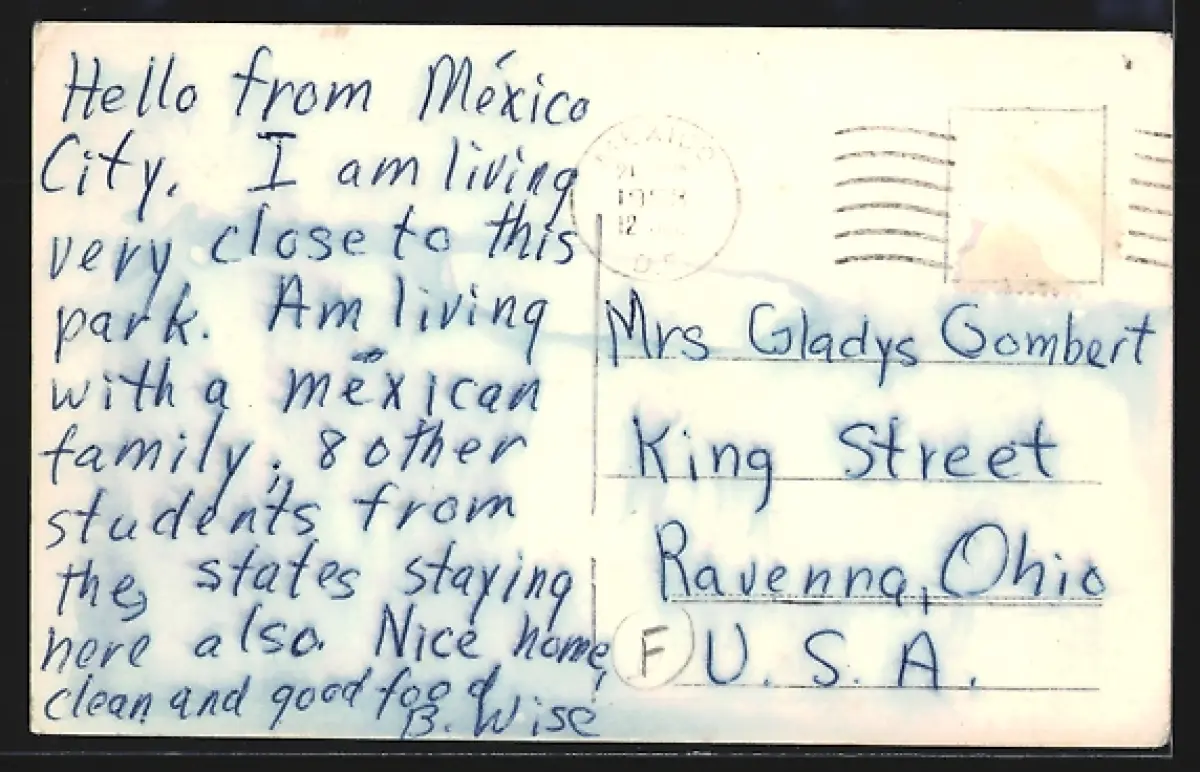 Hello from México
City. I am living
very close to this
park. Am living
with a méxican
family; 8 other
students from
the states staying
here also. Nice home,
clean and good food
B. Wise
21
12
D.F.
Mrs Gladys Gombert
King Street
Ravenna, Ohio
F U. S. A.